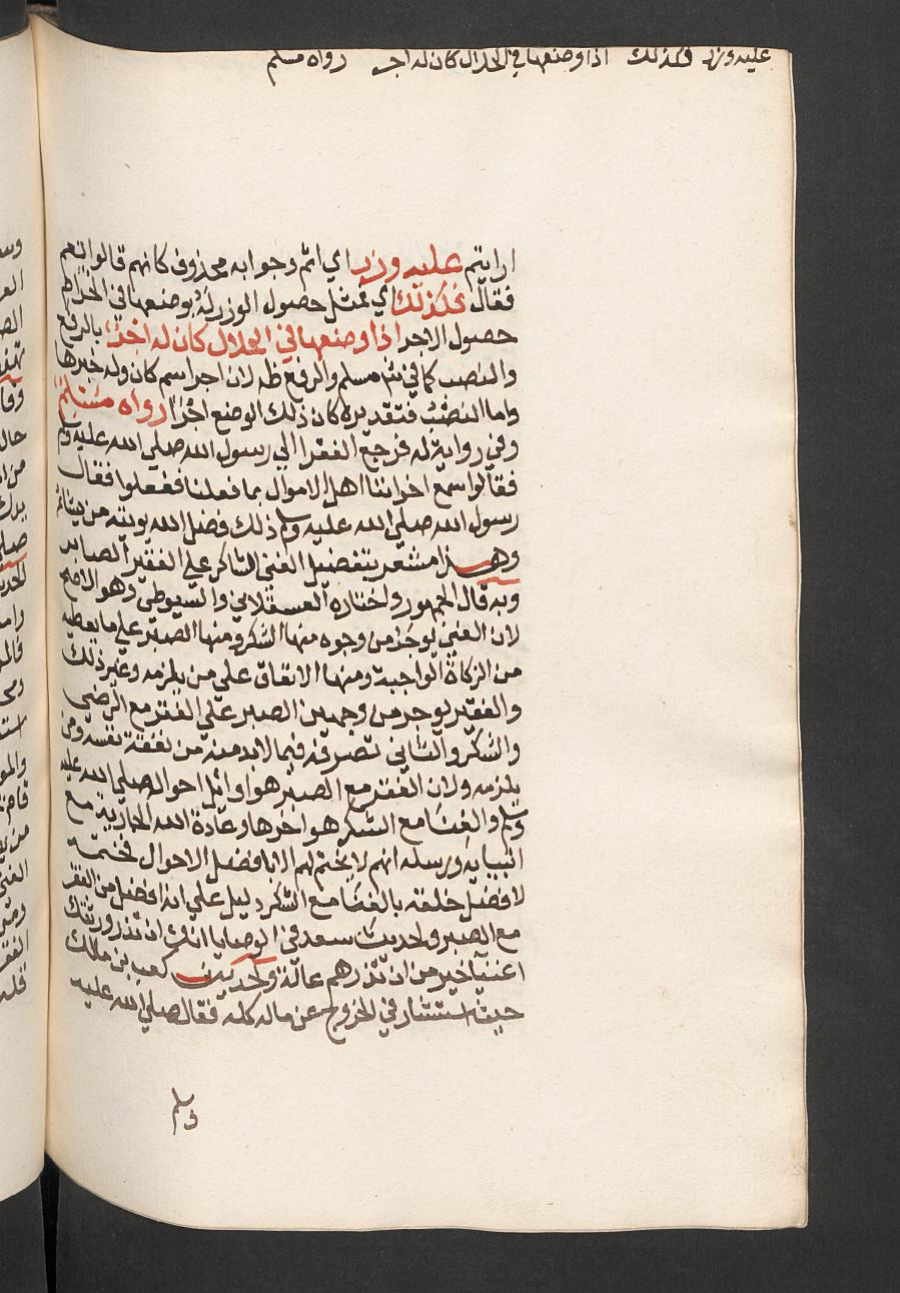 عليه وزر فكذلك اذا وضعها في الحلال كان له اجر رواه مسلم
ارايتم عليه وزر اي اثم وجوابه محذوف كانهم قالوا نعم
فقال فكذلك اي فمثل حصول الوزر له بوضعها في الحرام
حصول الاجر اذا وضعها في الحلال كان له اجر بالرفع
والنصب كما في مسلم والرفع ظ لان اجر اسم كان وله خبرها
واما النصب فتقديره كان ذلك الوضع اجرا رواه مسلم
وفي رواية له فرجع الفقرا الي رسول الله صلي الله عليه وسلم
فقالوا سمع اخواننا اهل الاموال بما فعلنا ففعلوا فقال
رسول الله صلي الله عليه وسلم ذلك فضل الله يوتيه من يشا
وهذا مشعر بتفضيل الغني الشاكر علي الفقير الصابر
وبه قال الجمهور واختاره العسقلاني والسيوطي وهو الاصح
لان الغني يوجر من وجوه منها الشكر ومنها الصبر علي ما يعطيه
من الزكاة الواجبة ومنها الانفاق علي من يلزمه وغير ذلك
والفقير يوجر من وجهين الصبر علي الفقر مع الرضي
والشكر والثاني تصرفه فيما لابد منه من نفقة نفسه ومن
يلزمه ولان الفقر مع الصبر هو اوائل احواله صلي الله عليه
وسلم والغنا مع الشكر هو اخرها وعادة الله الجارية مع
انبيايه ورسله انهم لا يختم لهم الا بافضل الاحوال فختمه
لافضل خلقه بالغنا مع الشكر دليل علي انه افضل من الفقر
مع الصبر وحديث سعد في الوصايا انك ان تذر ورثتك
اغنيا خير من ان تذرهم عالة وحديث كعب بن مالك
حيث استشار في الخروج عن ماله كله فقال صلي الله عليه
وسلم